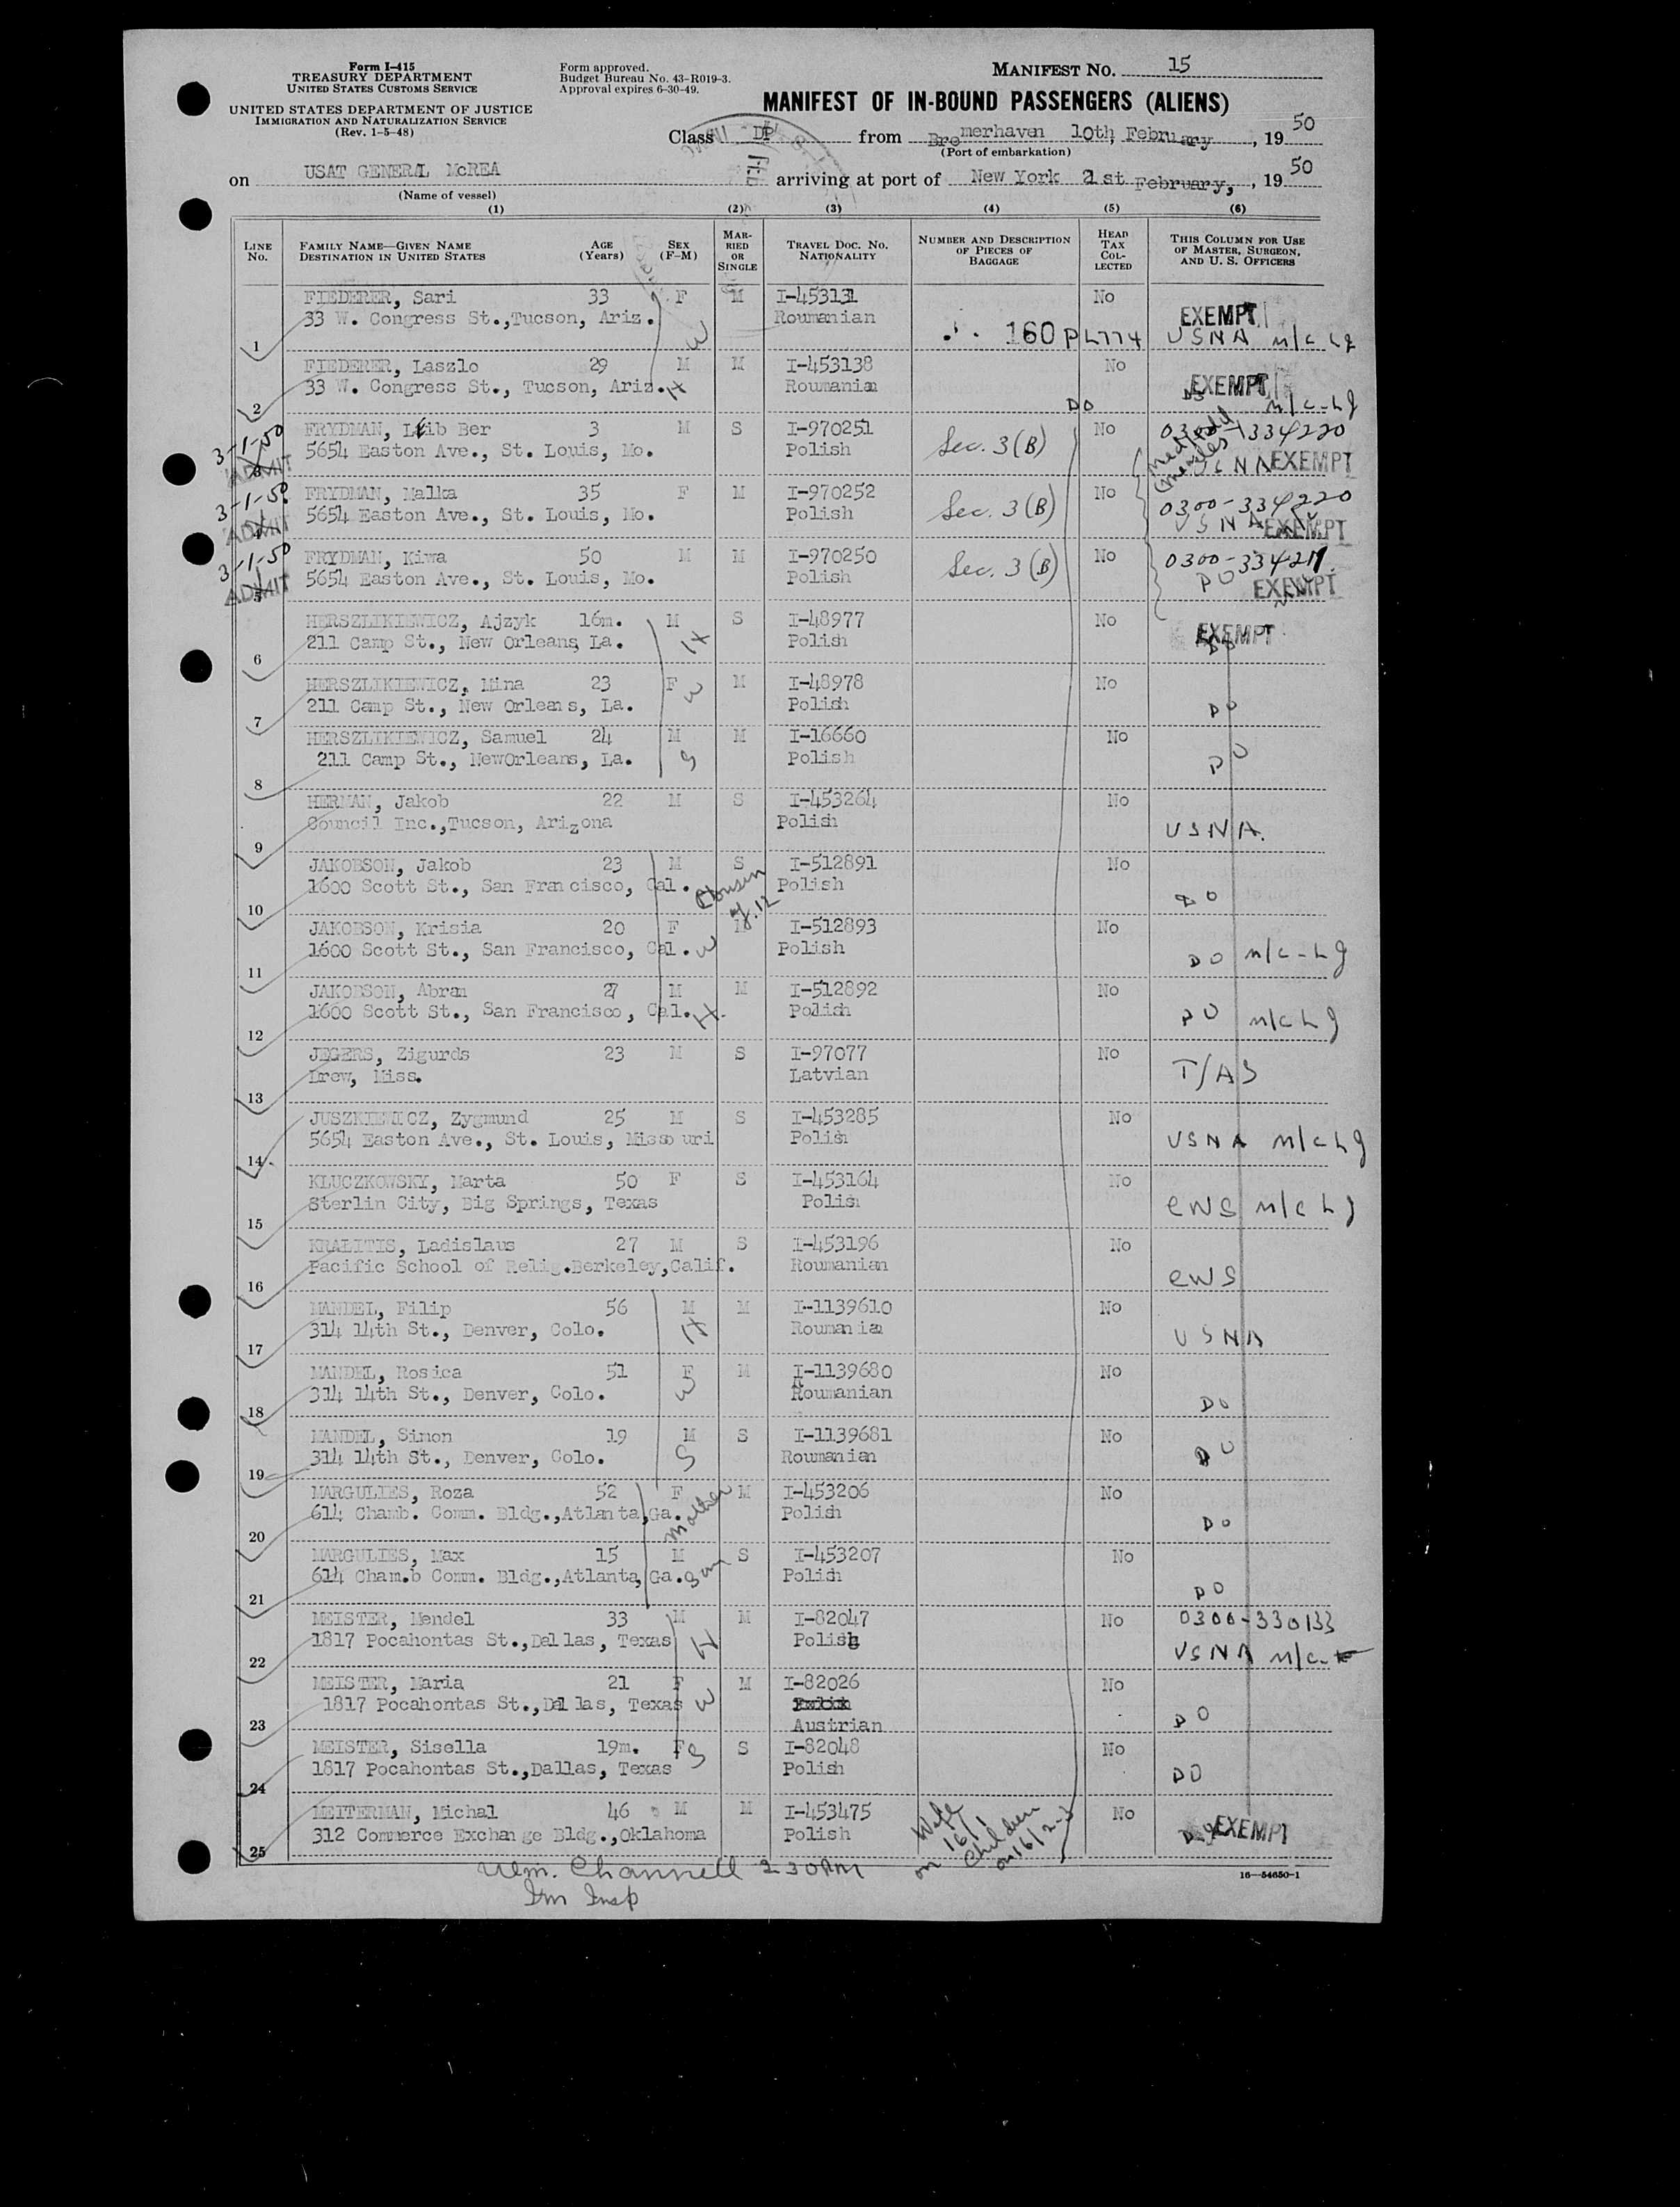 Form I-415
TREASURY DEPARTMENT
UNITED STATES CUSTOMS SERVICE
UNITED STATES DEPARTMENT OF JUSTICE
IMMIGRATION AND NATURALIZATION SERVICE
(Rev. 1-5-48)
Form approved.
Budget Bureau No. 43-R019-3.
Approval expires 6-30-49.
MANIFEST NO. 15
MANIFEST OF IN-BOUND PASSENGERS (ALIENS)
Class DP from Bremerhaven 10th, February, 19 50
(Port of embarkation)
on USAT GENERAL McREA arriving at port of New York 21st February, , 19 50
(Name of vessel)
(1) (2) (3) (4) (5) (6)
LINE No. FAMILY NAME—GIVEN NAME DESTINATION IN UNITED STATES AGE (Years) SEX (F-M) MARRIED OR SINGLE TRAVEL DOC. NO. NATIONALITY NUMBER AND DESCRIPTION OF PIECES OF BAGGAGE HEAD TAX COLLECTED THIS COLUMN FOR USE OF MASTER, SURGEON, AND U. S. OFFICERS
FIEDERER, Sari 33 F M I-453131 No EXEMPT
1 33 W. Congress St.,Tucson, Ariz. W Roumanian 160 PL774 USNA n/c Lg
FIEDERER, Laszlo 29 M M I-453138 No EXEMPT
2 33 W. Congress St., Tucson, Ariz. H Roumanian DO n/c-Lg
3-1-50 FRYDMAN, Leib Ber 3 M S I-970251 Sec. 3(B) No 0300-334220
ADMIT 3 5654 Easton Ave., St. Louis, Mo. Polish measles USNA EXEMPT
3-1-50 FRYDMAN, Malka 35 F M I-970252 Sec. 3(B) No 0300-334220
ADMIT 5654 Easton Ave., St. Louis, Mo. Polish USNA EXEMPT
3-1-50 FRYDMAN, Kiwa 50 M M I-970250 Sec. 3(B) No 0300-334211
ADMIT 5 5654 Easton Ave., St. Louis, Mo. Polish DO EXEMPT
HERSZLIKIEWICZ, Ajzyk 16m. M S I-48977 No EXEMPT
6 211 Camp St., New Orleans, La. Polish DO
HERSZLIKIEWICZ, Mina 23 F M I-48978 No
7 211 Camp St., New Orleans, La. W Polish DO
HERSZLIKIEWICZ, Samuel 24 M M I-16660 No
8 211 Camp St., NewOrleans, La. S Polish DO
HERMAN, Jakob 22 M S I-453264 No
9 Council Inc.,Tucson, Arizona Polish USNA.
JAKOBSON, Jakob 23 M S I-512891 No
10 1600 Scott St., San Francisco, Cal. Cousin of 12 Polish DO
JAKOBSON, Krisia 20 F M I-512893 No
11 1600 Scott St., San Francisco, Cal. W Polish DO n/c-Lg
JAKOBSON, Abram 27 M M I-512892 No
12 1600 Scott St., San Francisco, Cal. H Polish DO n/c Lg
JEGERS, Zigurds 23 M S I-97077 No
13 Drew, Miss. Latvian T/AS
JUSZKIEWICZ, Zygmund 25 M S I-453285 No
14 5654 Easton Ave., St. Louis, Missouri Polish USNA n/c Lg
KLUCZKOWSKY, Marta 50 F S I-453164 No
15 Sterlin City, Big Springs, Texas Polish CWS n/c Lg
KRALITIS, Ladislaus 27 M S I-453196 No
16 Pacific School of Relig.Berkeley,Calif. Roumanian CWS
MANDEL, Filip 56 M M I-1139610 No
17 314 14th St., Denver, Colo. H Roumanian USNA
MANDEL, Rosica 51 F M I-1139680 No
18 314 14th St., Denver, Colo. W Roumanian DO
MANDEL, Simon 19 M S I-1139681 No
19 314 14th St., Denver, Colo. S Roumanian DO
MARGULIES, Roza 52 F M I-453206 No
20 614 Chamb. Comm. Bldg.,Atlanta,Ga. Mother Polish DO
MARGULIES, Max 15 M S I-453207 No
21 614 Cham.b Comm. Bldg.,Atlanta,Ga. Son Polish DO
MEISTER, Mendel 33 M M I-82047 No 0300-330133
22 1817 Pocahontas St.,Dallas, Texas H Polish USNA n/c
MEISTER, Maria 21 F M I-82026 No
23 1817 Pocahontas St.,Dallas, Texas W Austrian DO
MEISTER, Sisella 19m. F S S I-82048 No
24 1817 Pocahontas St.,Dallas, Texas Polish DO
MEITERMAN, Michal 46 M M I-453475 Wife on 16/1 Children on 16/2-3 No
25 312 Commerce Exchange Bldg.,Oklahoma Polish EXEMPT
Wm. Channell 2 30 PM
Im Insp
16—54650-1